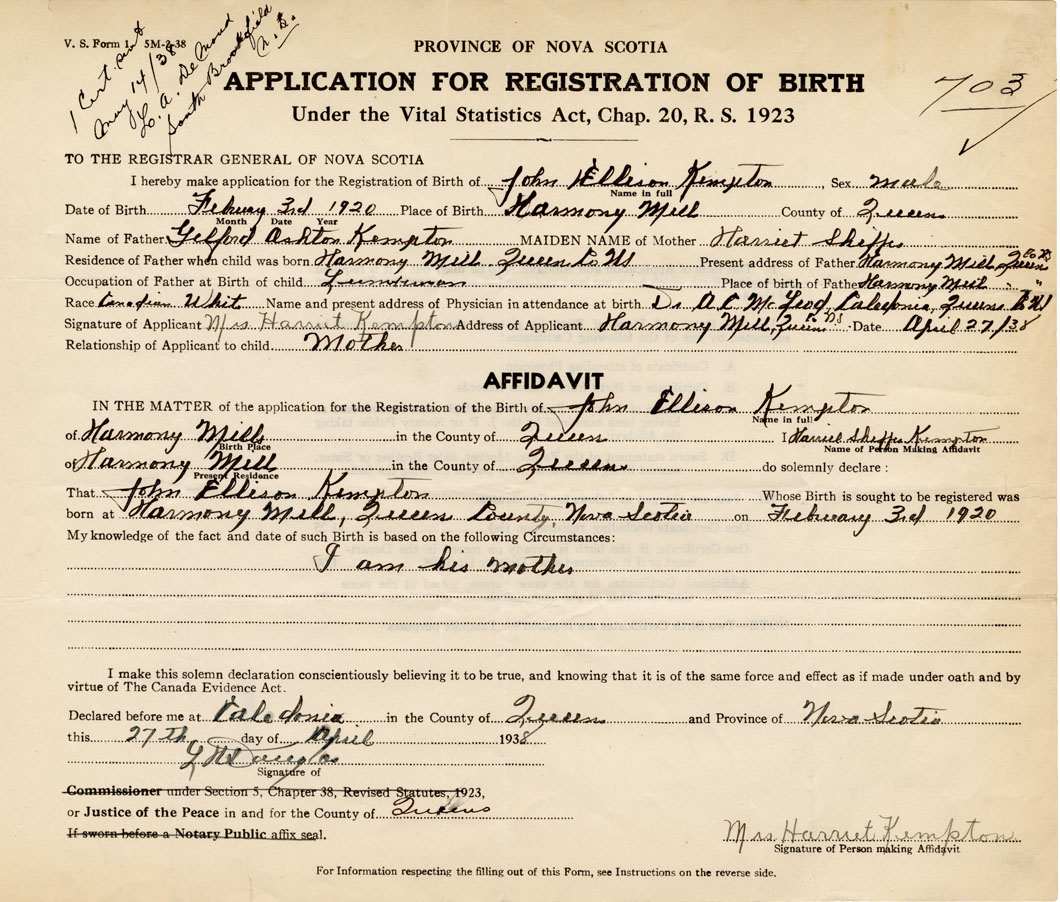 V. S. Form 1. 5M-2-38
1 Cert. sent
May 14/38
L. A. DeMond
South Brookfield
N. S.
PROVINCE OF NOVA SCOTIA
APPLICATION FOR REGISTRATION OF BIRTH
703
Under the Vital Statistics Act, Chap. 20, R. S. 1923
TO THE REGISTRAR GENERAL OF NOVA SCOTIA
I hereby make application for the Registration of Birth of John Ellison Kempton, Sex male
Name in full
Date of Birth Febuary 3rd 1920 Place of Birth Harmony Mill County of Queens
Month Date Year
Name of Father Gelford Ashton Kempton MAIDEN NAME of Mother Harriet Sheffs
Residence of Father when child was born Harmony Mill Queen Co NS Present address of Father Harmony Mill Queen Co NS
Occupation of Father at Birth of child Lumberman Place of birth of Father Harmony Mill " "
Race Canadian Whit Name and present address of Physician in attendance at birth Dr A C McLeod, Caledonia, Queens Co NS
Signature of Applicant Mrs Harriet Kempton Address of Applicant Harmony Mill, Queen Co NS Date April 27/38
Relationship of Applicant to child Mother
AFFIDAVIT
IN THE MATTER of the application for the Registration of the Birth of John Ellison Kempton
Name in full
of Harmony Mills in the County of Queen I Harriet Sheffs Kempton
Birth Place Name of Person Making Affidavit
of Harmony Mill in the County of Queens do solemnly declare:
Present Residence
That John Ellison Kempton Whose Birth is sought to be registered was
born at Harmony Mill, Queen County, Nova Scotia on February 3rd 1920
My knowledge of the fact and date of such Birth is based on the following Circumstances:
I am his mother
I make this solemn declaration conscientiously believing it to be true, and knowing that it is of the same force and effect as if made under oath and by
virtue of The Canada Evidence Act.
Declared before me at Caledonia in the County of Queens and Province of Nova Scotia
this 27th day of April 1938
Douglas
Signature of
Commissioner under Section 5, Chapter 38, Revised Statutes, 1923,
or Justice of the Peace in and for the County of Queens
If sworn before a Notary Public affix seal.
Mrs Harriet Kempton
Signature of Person making Affidavit
For Information respecting the filling out of this Form, see Instructions on the reverse side.